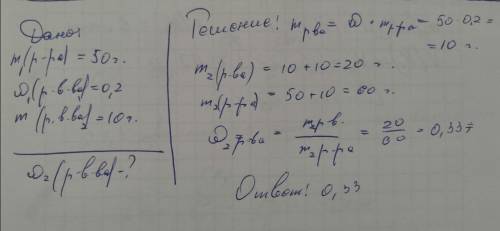 Дано:
m₁(р-ра) = 50 г.
ω₁(р.в-ва) = 0,2
m (р.в.ва)₂ = 10 г.
ω₂(р-в-ва) - ?
Решение: m р ва = ω · m р-ра = 50 · 0,2 =
= 10 г.
m₂(р-ва) = 10 + 10 = 20 г.
m₂(р-ра) = 50 + 10 = 60 г.
ω₂ р-ва = m₂р.в. / m₂р-ра = 20/60 = 0,33
Ответ: 0,33